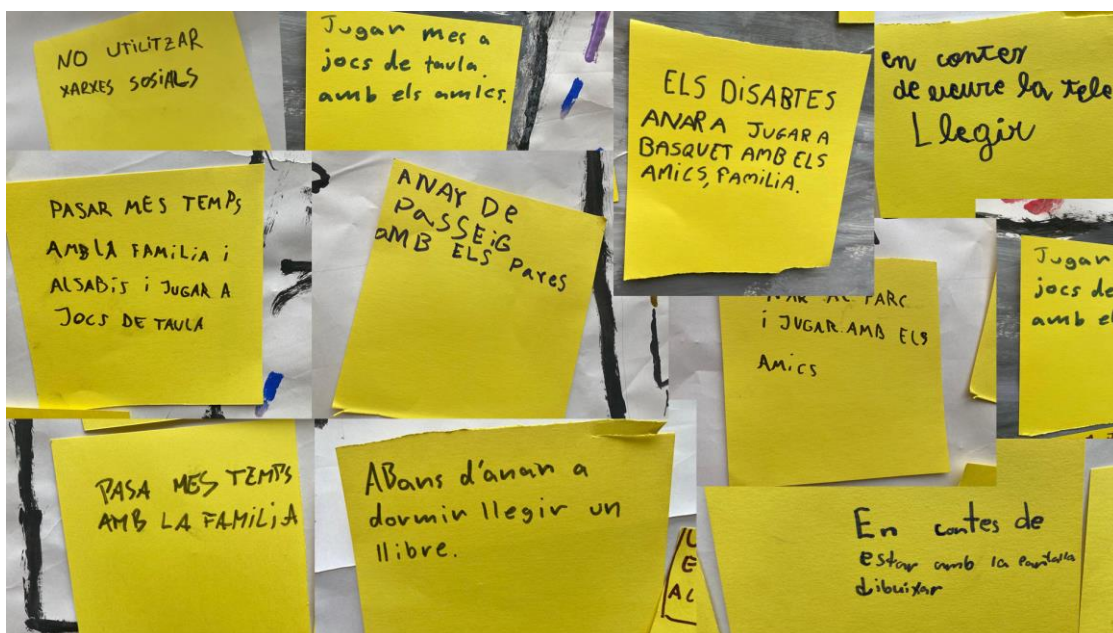 NO UTILITZAR
XARXES SOSIALS
Jugar mes a
jocs de taula
amb els amics.
ELS DISABTES
ANAR A JUGAR A
BASQUET AMB ELS
AMICS, FAMILIA.
en contes
de veure la tele
Llegir
PASAR MES TEMPS
AMB LA FAMILIA i
ALS ABIS i JUGAR A
JOCS DE TAULA
ANAR DE
PASSEiG
AMB ELS Pares
AL PARC
i JUGAR AMB ELS
AMiCS
Jugar
jocs de
amb el
PASA MES TEMPS
AMB LA FAMILIA
ABans d'anan a
dormir llegir un
llibre.
En contes de
estar amb la pantalla
dibuixar
E
AL